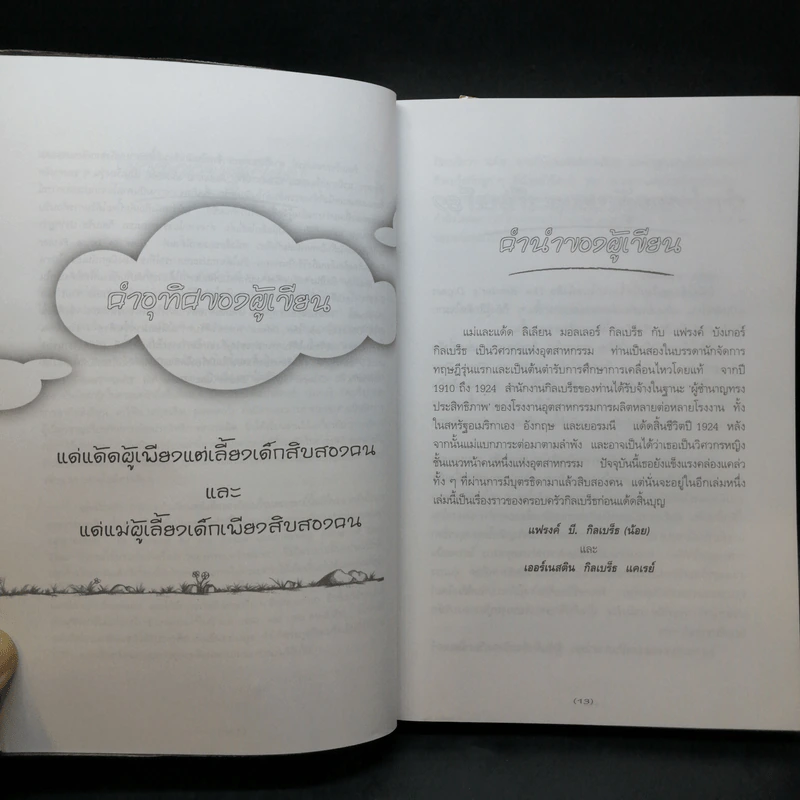 คำอุทิศของผู้เขียน
แด่แด้ดผู้เพียงแต่เลี้ยงเด็กสิบสองคน
และ
แด่แม่ผู้เลี้ยงเด็กเพียงสิบสองคน
คำนำของผู้เขียน
แม่และแด้ด ลิเลียน มอลเลอร์ กิลเบร็ธ กับ แฟรงค์ บังเกอร์
กิลเบร็ธ เป็นวิศวกรแห่งอุตสาหกรรม ท่านเป็นสองในบรรดานักจัดการ
ทฤษฎีรุ่นแรกและเป็นต้นตำรับการศึกษาการเคลื่อนไหวโดยแท้ จากปี
1910 ถึง 1924 สำนักงานกิลเบร็ธของท่านได้รับจ้างในฐานะ 'ผู้ชำนาญทรง
ประสิทธิภาพ' ของโรงงานอุตสาหกรรมการผลิตหลายต่อหลายโรงงาน ทั้ง
ในสหรัฐอเมริกาเอง อังกฤษ และเยอรมนี แด้ดสิ้นชีวิตปี 1924 หลัง
จากนั้นแม่แบกภาระต่อมาตามลำพัง และอาจเป็นได้ว่าเธอเป็นวิศวกรหญิง
ชั้นแนวหน้าคนหนึ่งแห่งอุตสาหกรรม ปัจจุบันนี้เธอยังแข็งแรงคล่องแคล่ว
ทั้ง ๆ ที่ผ่านการมีบุตรธิดามาแล้วสิบสองคน แต่นั่นจะอยู่ในอีกเล่มหนึ่ง
เล่มนี้เป็นเรื่องราวของครอบครัวกิลเบร็ธก่อนแด้ดสิ้นบุญ
แฟรงค์ บี. กิลเบร็ธ (น้อย)
และ
เออร์เนสตีน กิลเบร็ธ แคเรย์
(13)